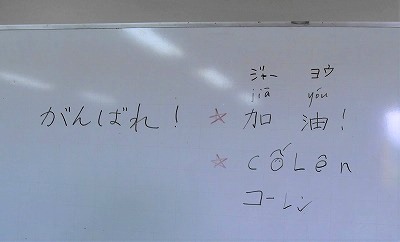 ジャー ヨウ
jiā yóu
がんばれ! ☆ 加 油!
☆ CỐLên
コーレン